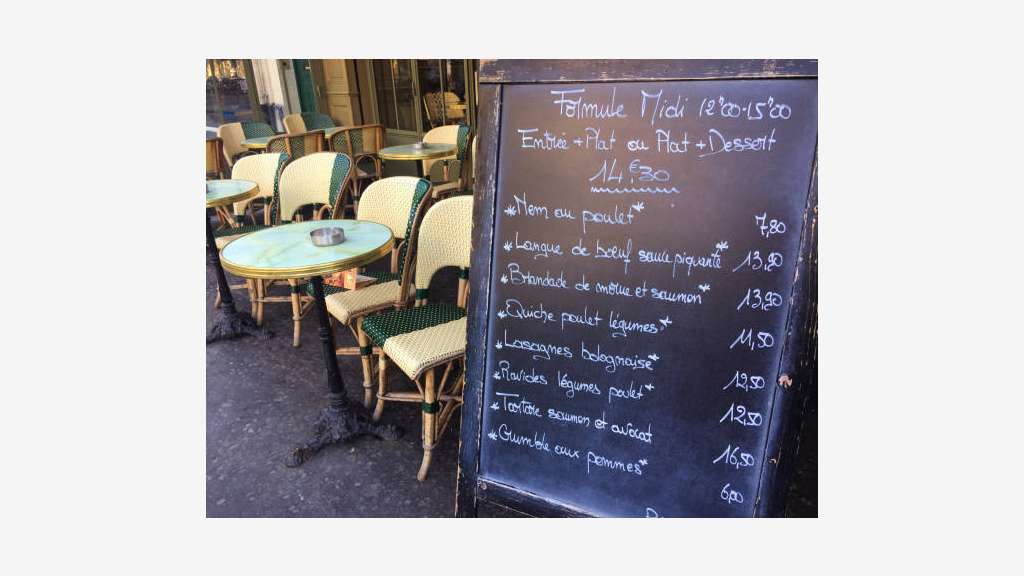 Formule Midi 12h00-15h00
Entrée + Plat ou Plat + Dessert
14€30
*Nem au poulet* 7,80
*Langue de bœuf sauce piquante* 13,90
*Brandade de morue et saumon* 13,90
*Quiche poulet légumes* 11,50
*Lasagnes bolognaise* 12,50
*Ravioles légumes poulet* 12,50
*Tartare saumon et avocat 16,50
*Crumble aux pommes* 6,00